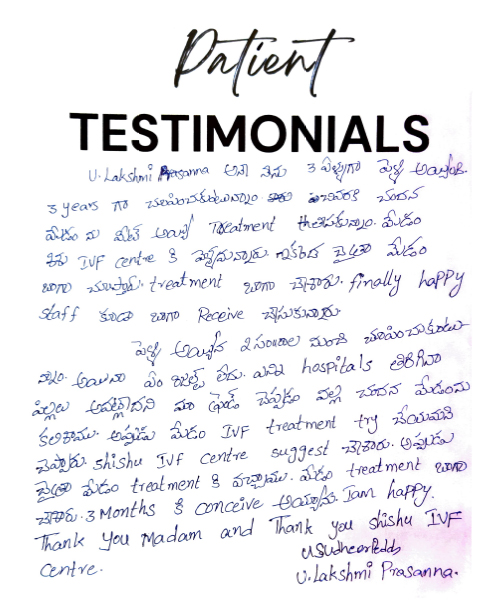 Patient
TESTIMONIALS
U. Lakshmi Prasanna అనే నేను 3 ఏళ్ళుగా పెళ్ళి అయ్యింది.
3 years గా చూపించుకుంటున్నాం. చివరికి చందన
మేడం ను మీట్ అయ్యి Treatment తీసుకున్నాం. మేడం
శిశు IVF centre కి ఇక్కడ చైత్రా మేడం
బాగా చూస్తారు. treatment బాగా చేశారు. finally happy
Staff కూడా బాగా Receive చేసుకున్నారు.
పెళ్ళి అయ్యిన 2 సంబరాల నుంచి చూపించుకుంటు-
న్నాం. అయినా ఏం రిజల్ట్ లేదు. ఎన్ని hospitals తిరిగినా
పిల్లలు మా ఫ్రెండ్ చెప్పడం వల్ల చందన మేడంను
కలిశాము. అప్పుడు మేడం IVF treatment try చేయమని
చెప్పారు. shishu IVF centre suggest చేశారు. అప్పుడు
చైత్రా మేడం treatment కి వచ్చాము. మేడం treatment బాగా
చేశారు. 3 Months కి conceive అయ్యాను. I am happy.
Thank you Madam and Thank you shishu IVF
Centre.
U. Lakshmi Prasanna.